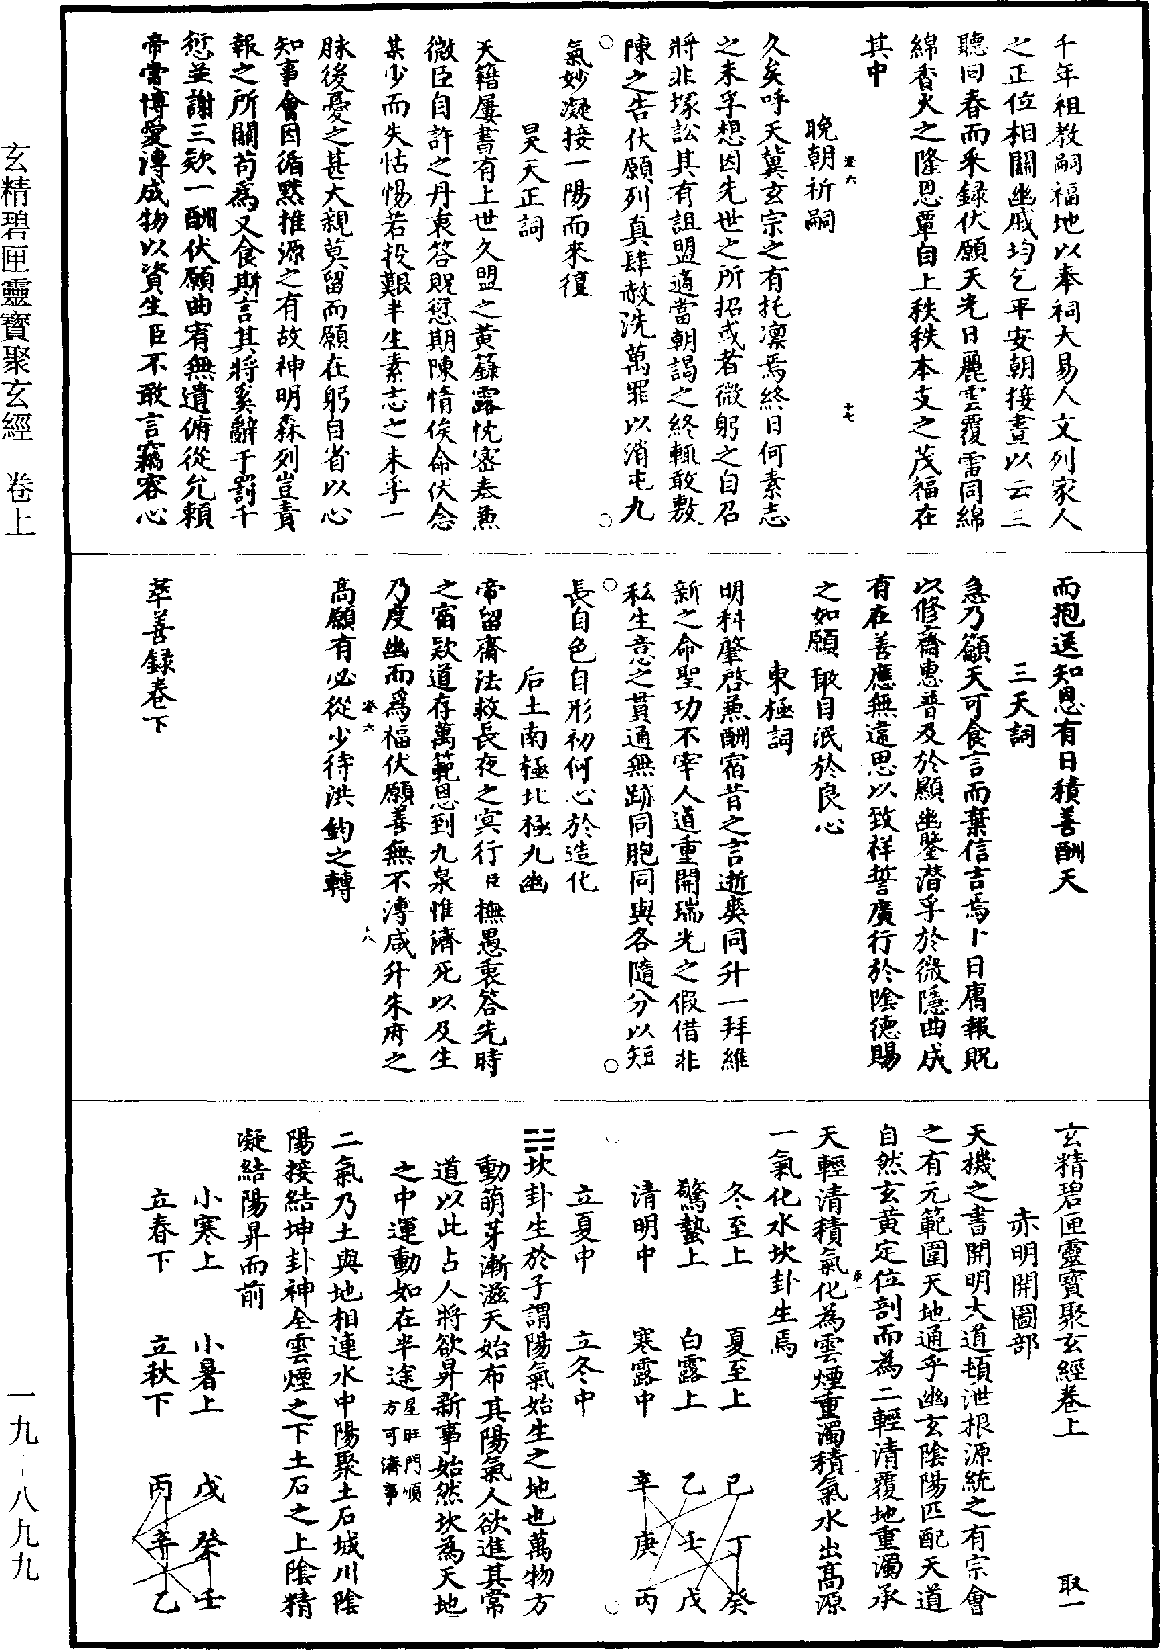 千年祖教嗣福地以奉祠大易人文列家人
之正位相關幽戚均乞平安朝接晝以云三
聽同春而采錄伏願天光日麗雲覆雷同綿
綿香火之隆恩覃自上秩秩本支之茂福在
其中
晚朝祈嗣
久矣呼天冀玄宗之有托凜焉終日何素志
之未孚想因先世之所招或者微躬之自召
將非塚訟其有詛盟適當朝謁之終輒敢敷
陳之告伏願列真肆赦洗萬罪以消屯九
氣妙凝接一陽而來復
昊天正詞
天籍屢書有上世久盟之黃籙露忱密奏兼
微臣自許之丹衷答貺愆期陳情俟命伏念
某少而失怙惕若投艱半生素志之未孚一
脉後憂之甚大親莫留而願在躬自省以心
知事會因循黙推源之有故神明森列豈責
報之所關苟為又食斯言其將奚辭于罰千
愆並謝三欵一酬伏願曲宥無遺俯從允賴
帝嘗博愛溥成物以資生臣不敢言竊容心
而抱送知恩有日積善酬天
三天詞
急乃籲天可食言而棄信吉焉卜日庸報貺
以修齋惠普及於顯幽鑒潛孚於微隱曲成
有在善應無違思以致祥誓廣行於陰德賜
之如願敢自泯於良心
東極詞
明科肇啓兼酬宿昔之言逝爽同升一拜維
新之命聖功不宰人道重開瑞光之假借非
私生意之貫通無跡同胞同與各隨分以短
長自色自形初何心於造化
后土南極北極九幽
帝留齋法救長夜之冥行臣撫愚衷答先時
之宿欵道存萬範恩到九泉惟濟死以及生
乃度幽而為福伏願善無不溥咸升朱府之
高願有必從少待洪鈞之轉
萃善錄卷下
玄精碧匣靈寶聚玄經卷上 取一
赤明開圖部
天機之書開明大道頓泄根源統之有宗會
之有元範圍天地通乎幽玄陰陽匹配天道
自然玄黃定位剖而為二輕清覆地重濁承
天輕清積氣化為雲煙重濁積氣水出高源
一氣化水坎卦生焉
冬至上 夏至上 巳 丁 癸
驚蟄上 白露上 乙 壬 戊
清明中 寒露中 辛 庚 丙
立夏中 立冬中
☵坎卦生於子謂陽氣始生之地也萬物方
動萌芽漸滋天始布其陽氣人欲進其常
道以此占人將欲昇新事始然坎為天地
之中運動如在半途星旺門順方可濟事
二氣乃土與地相連水中陽聚土石城川陰
陽接結坤卦神全雲煙之下土石之上陰精
凝結陽昇而前
小寒上 小暑上 戊 癸 壬
立春下 立秋下 丙 辛 乙
玄精碧匣靈寶聚玄經 卷上
一九-八九九